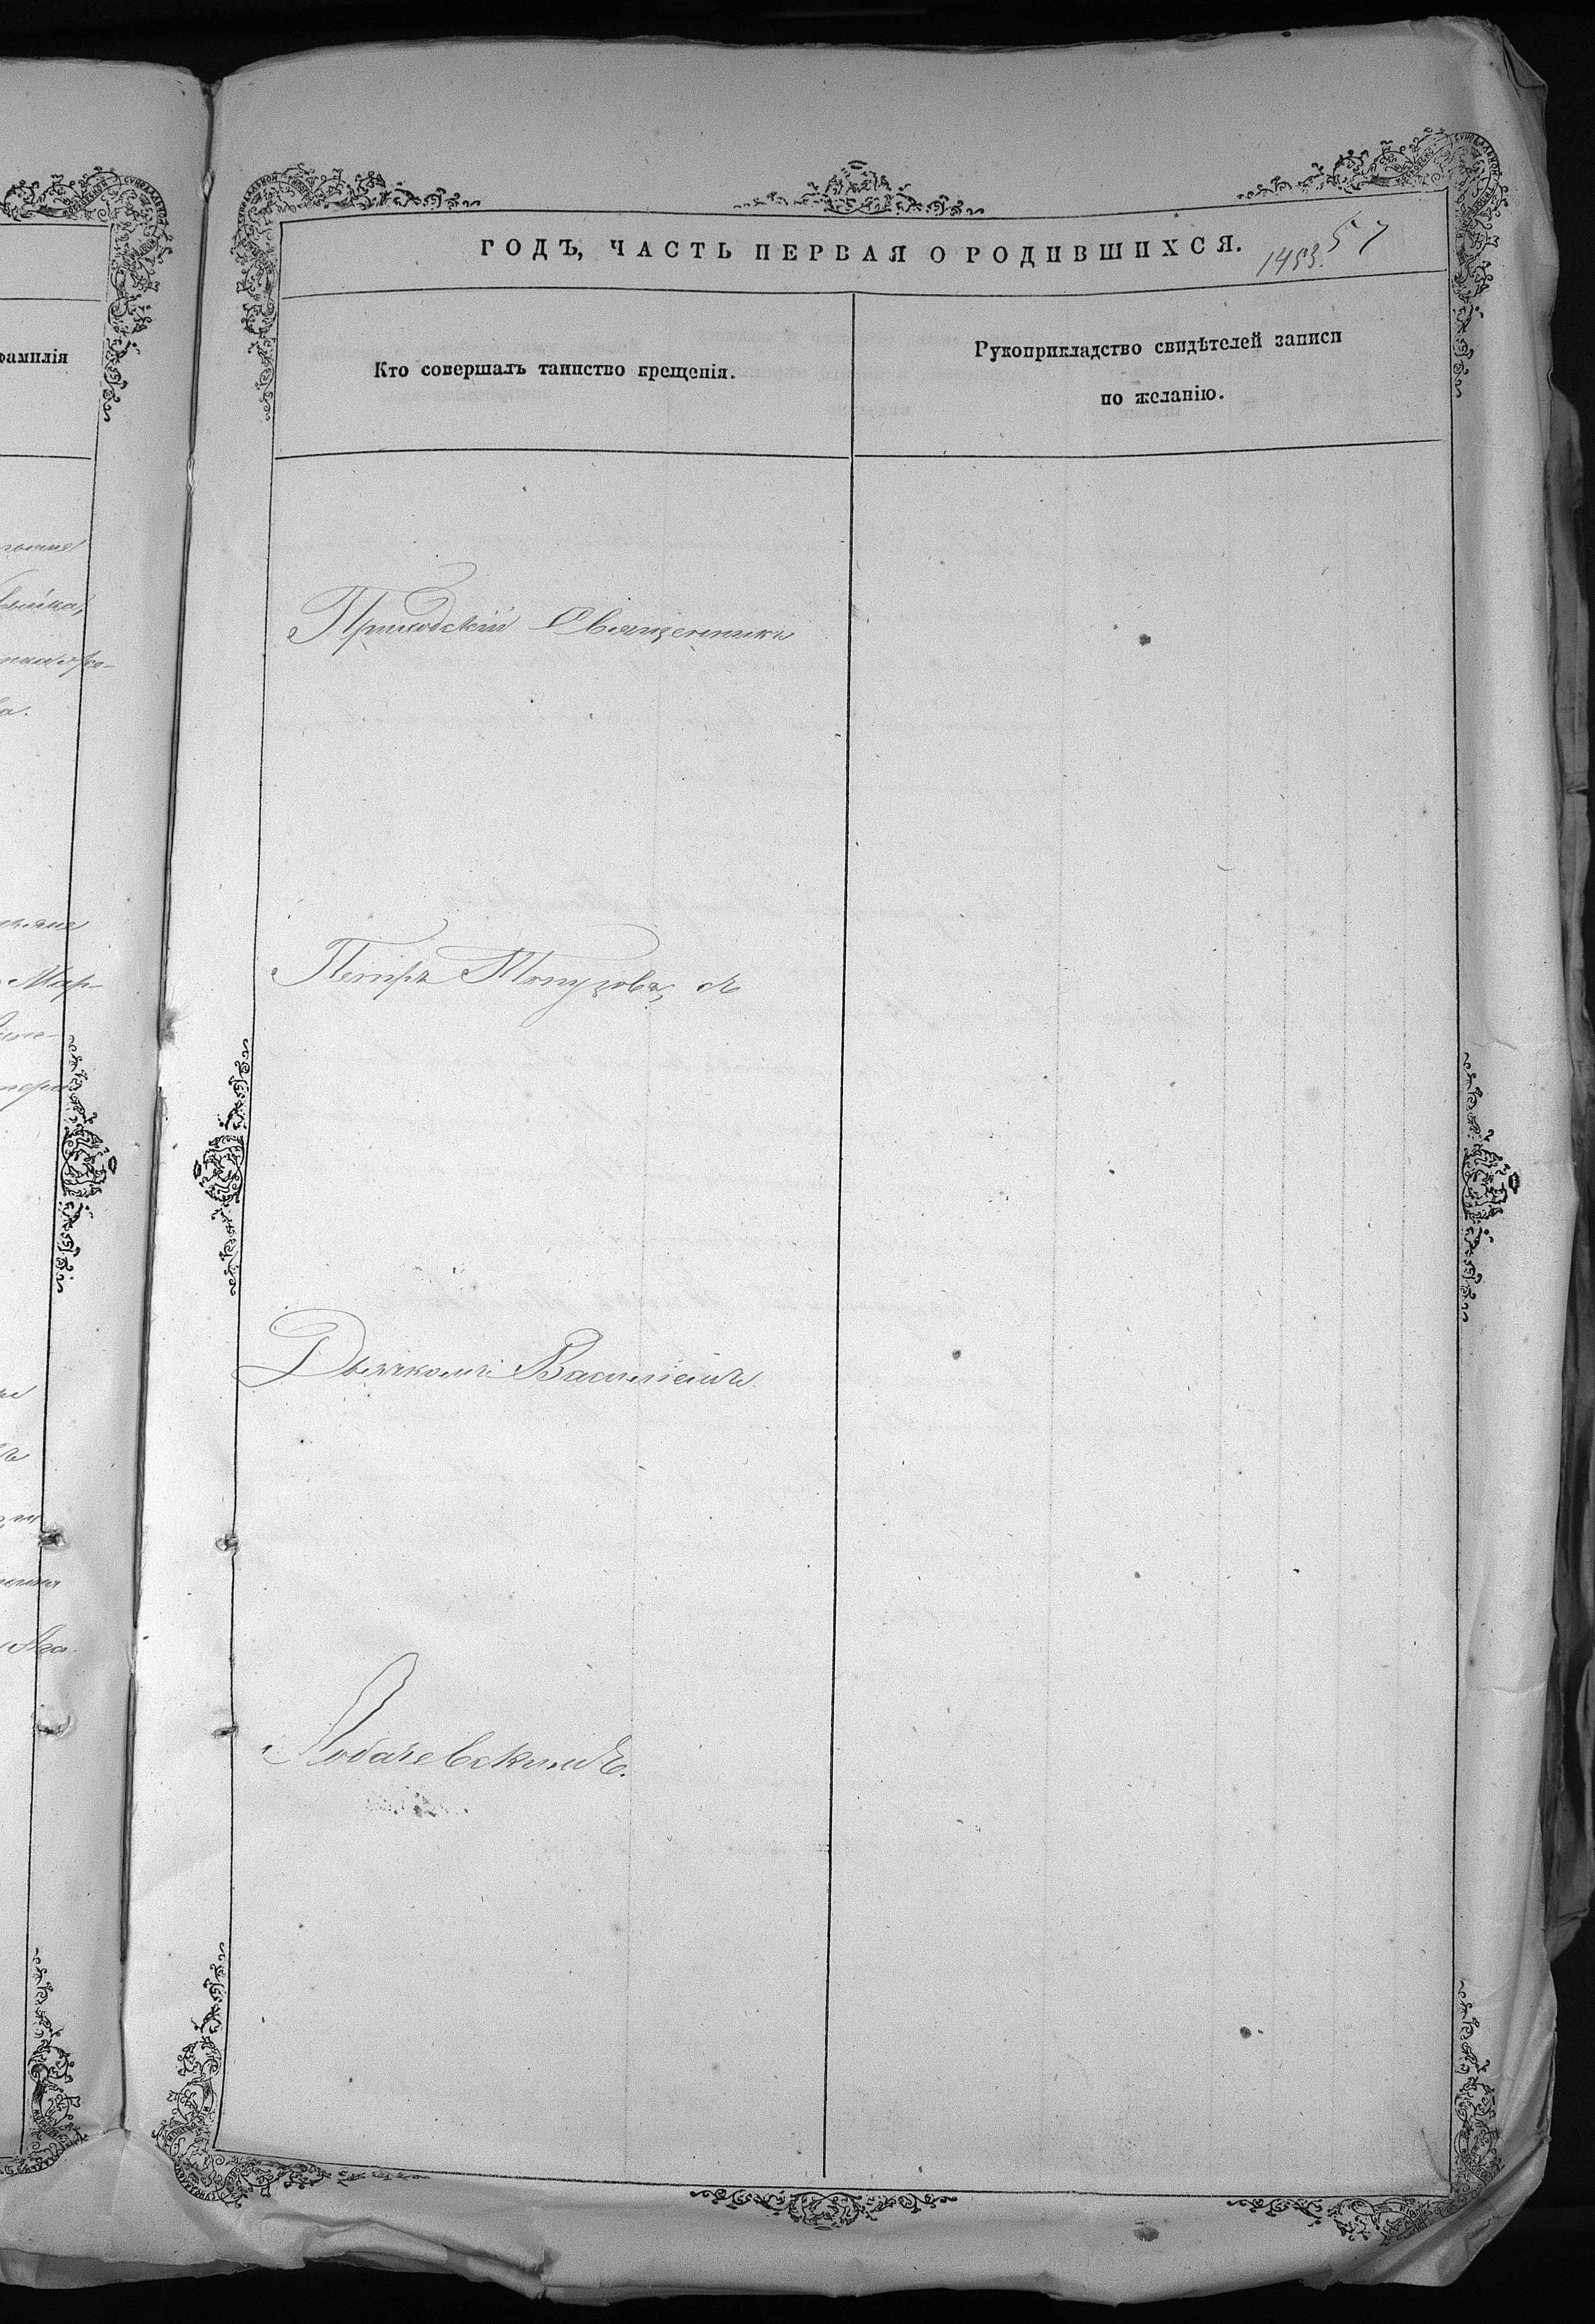 ГОДЪ, ЧАСТЬ ПЕРВАЯ О РОДИВШИХСЯ.
1453. 57
фамилія
Кто совершалъ таинство крещенія.
Рукоприкладство свидѣтелей записи
по желанію.
Приходскій Священникъ
Петръ съ
Дьячкомъ Василіемъ
Лобачевскимъ.